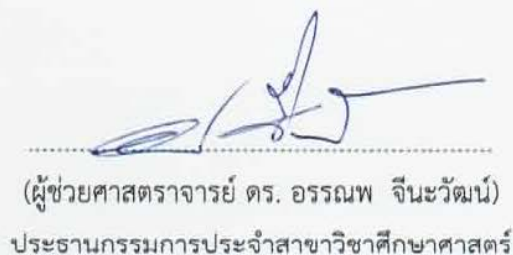 (ผู้ช่วยศาสตราจารย์ ดร. อรรณพ จีนะวัฒน์)
ประธานกรรมการประจำสาขาวิชาศึกษาศาสตร์